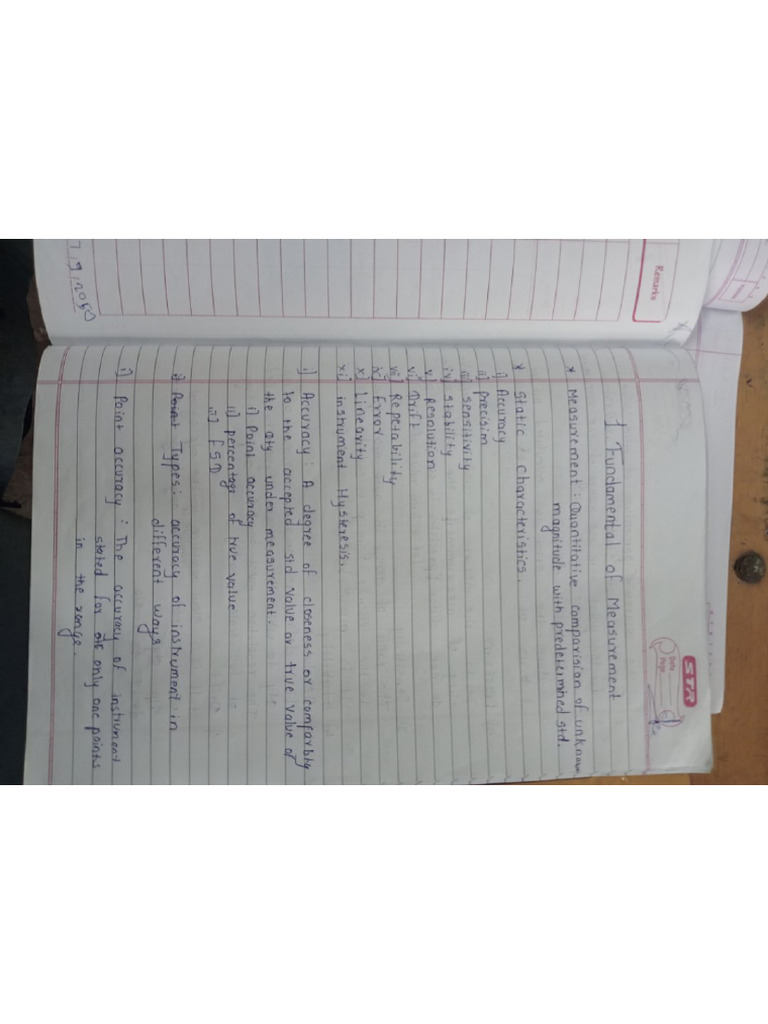 STR
Date
Page
1 Fundamental of Measurement
* Measurement : Quantitative comparision of unknown
magnitude with predetermined std.
* Static characteristics.
i] Accuracy
ii] precision
iii] sensitivity
iv] stability
v] Resolution
vi] Drift
vii] Repetability
ix] Error
x] Linearity
xi] instrument Hysteresis.
i] Accuracy : A degree of closeness or comparbty
to the accepted std value or true value of
the qty under measurement.
i] Point accuracy
ii] percentage of true value
iii] FSD
Types : accuracy of instrument in
different ways
i] Point accuracy : The accuracy of instrument
stated for only one points
in the range.
Remarks